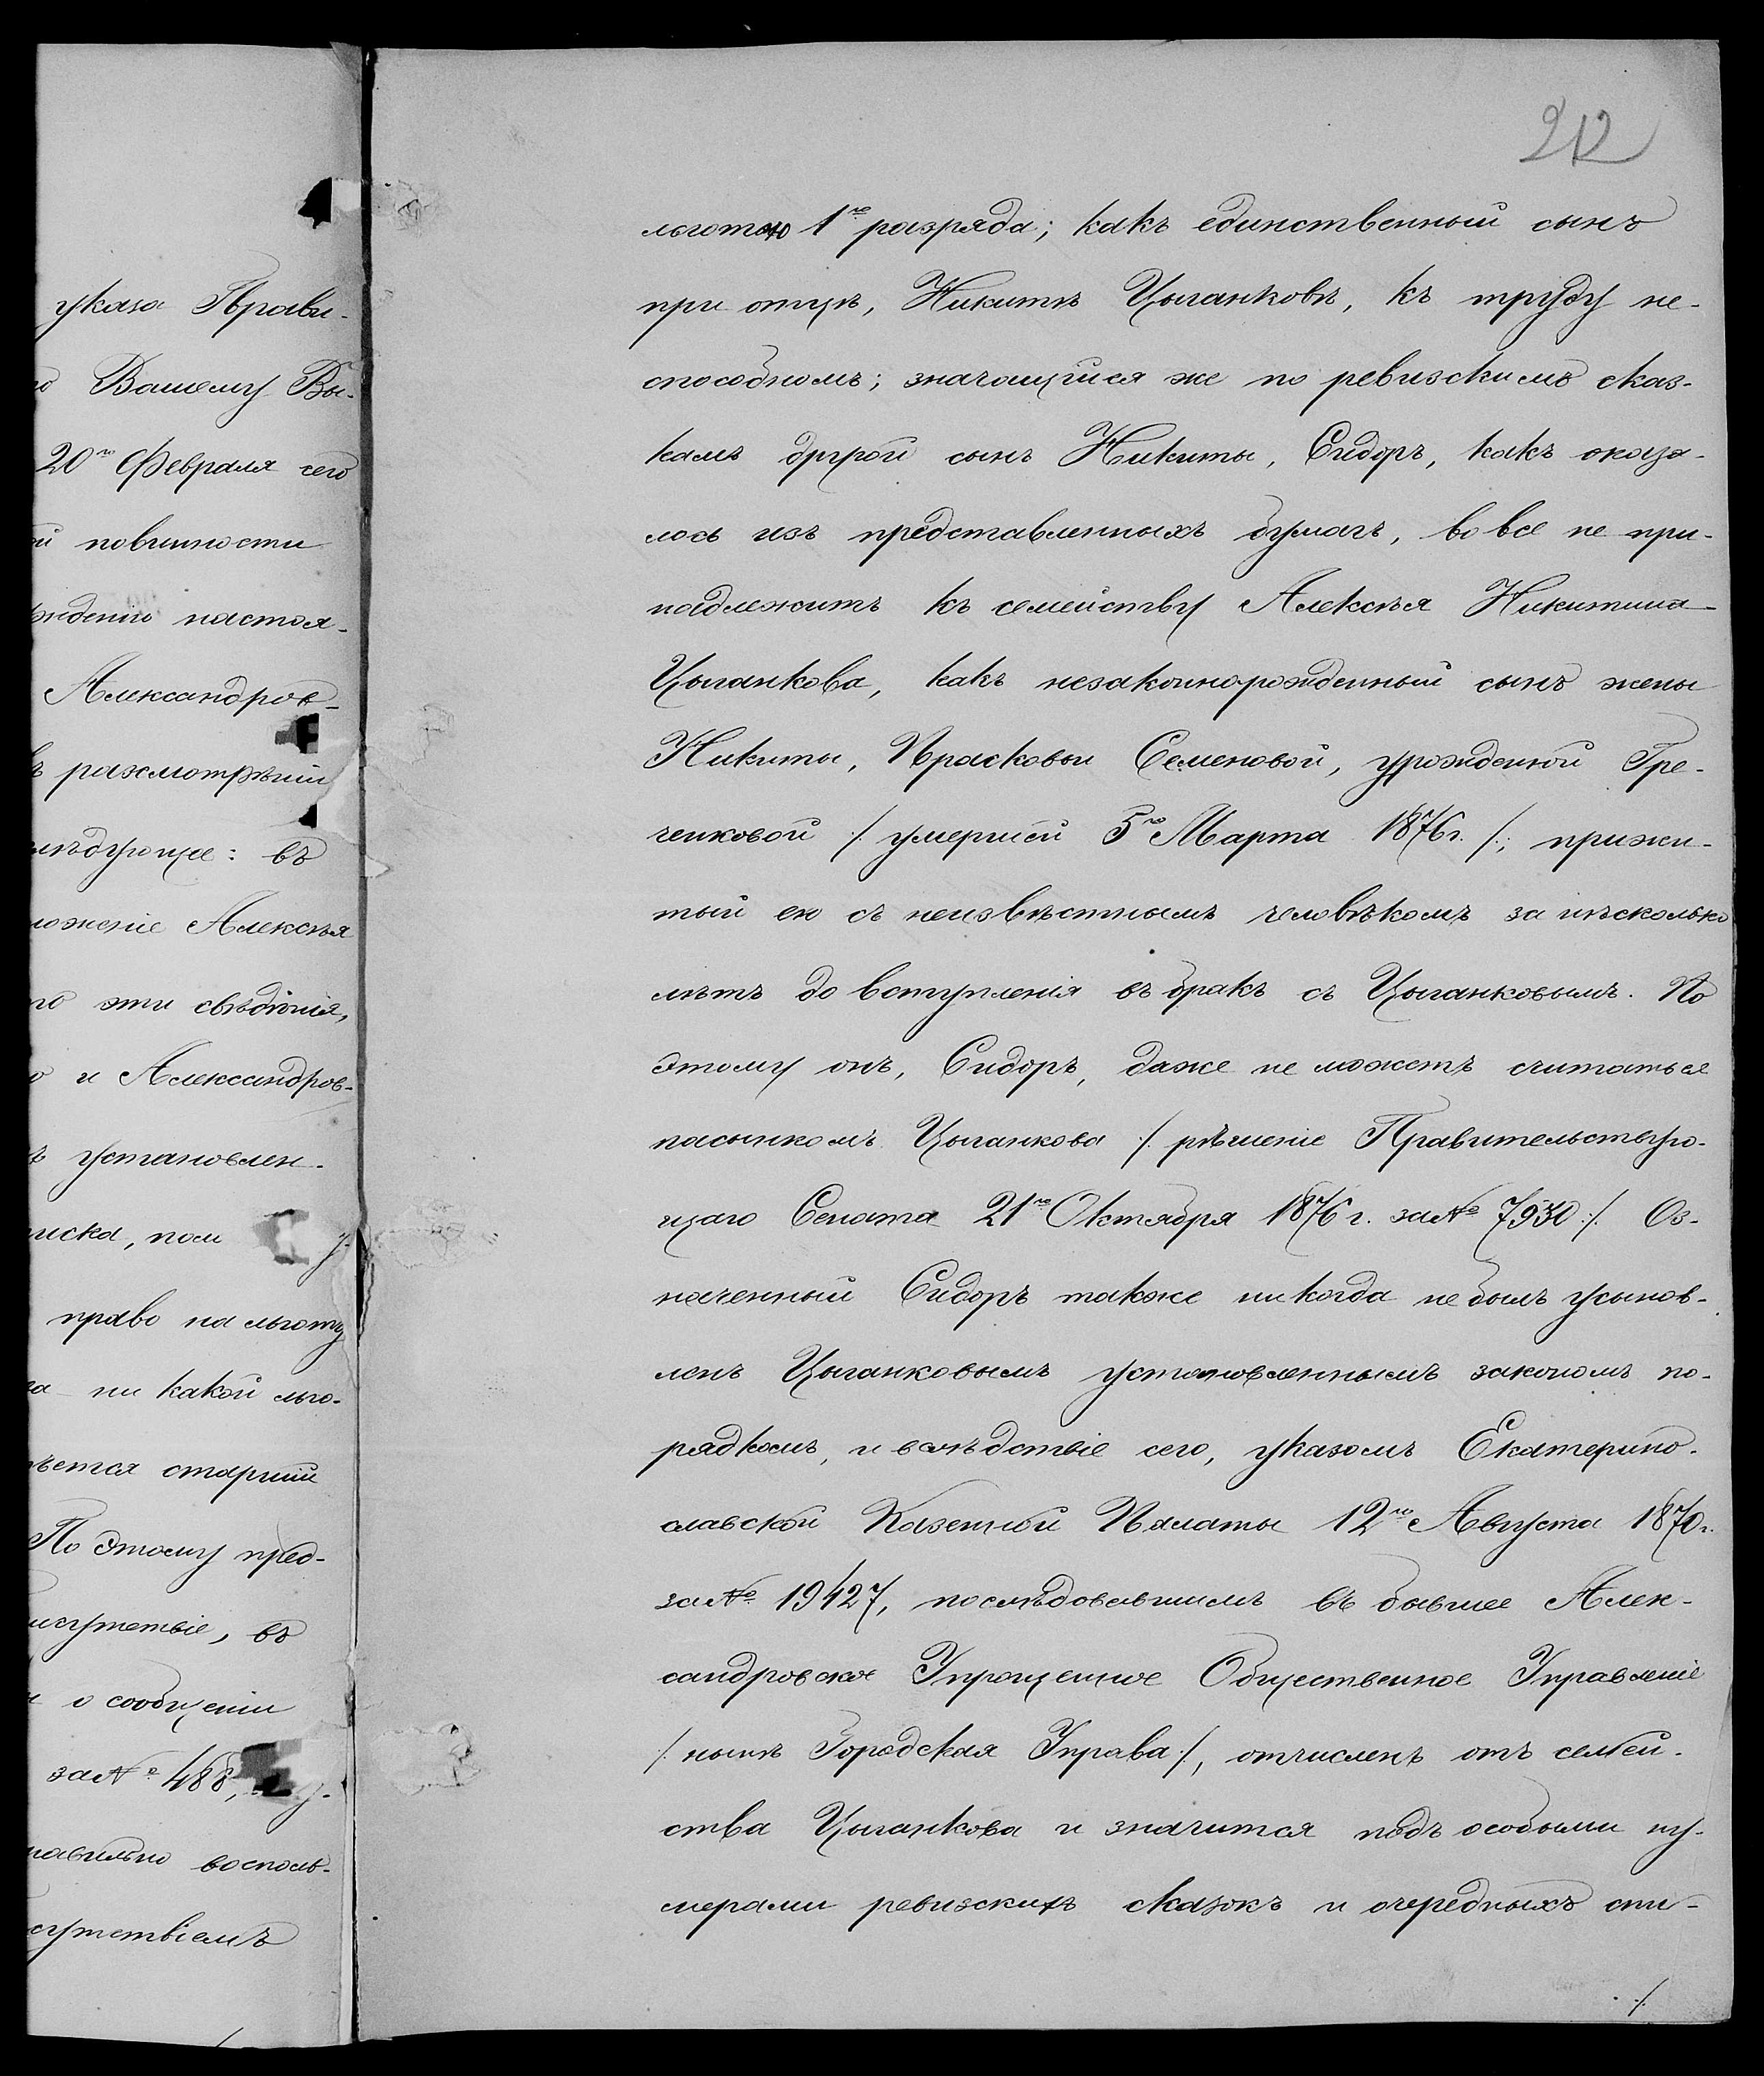 указа Прави-
Вашему Вы-
20го Февраля сего
повинности
настоя-
Александров-
разсмотрѣніи
въ
Алексѣя
эти свѣдѣнія,
и Александров-
установлен-
право на льготу
ни какой льго-
старшій
По этому пред-
въ
о сообщеніи
за № 488,
восполь-
212
льготою 1го разряда; какъ единственный сынъ
при отцѣ, Никитѣ Цыганковѣ, къ труду не-
способномъ; значащійся же по ревизскимъ сказ-
камъ другой сынъ Никиты, Сидоръ, какъ оказа-
лось изъ представленныхъ бумагъ, во все не при-
надлежитъ къ семейству Алексѣя Никитина
Цыганкова, какъ незаконнорожденный сынъ жены
Никиты, Прасковьи Семеновой, урожденной Гре-
ченковой /: умершей 5го Марта 1876 г. :/; прижи-
тый ею съ неизвѣстнымъ человѣкомъ за нѣсколько
лѣтъ до вступленія въ бракъ съ Цыганковымъ. По
этому онъ, Сидоръ, даже не можетъ считаться
пасынкомъ Цыганкова /: рѣшеніе Правительствую-
щаго Сената 21го Октября 1876 г. за № 7930 :/. Оз-
наченный Сидоръ также ни когда не былъ усынов-
ленъ Цыганковымъ установленнымъ закономъ по-
рядкомъ, и вслѣдствіе сего, указомъ Екатерино-
славской Казенной Палаты 12го Августа 1870 г.
за № 19427, послѣдовавшимъ въ бывшее Алек-
сандровское Упрощенное Общественное Управленіе
/: нынѣ Городская Управа :/, отчисленъ отъ семей-
ства Цыганкова и значится подъ особыми ну-
мерами ревизскихъ сказокъ и очередныхъ спи-
./.